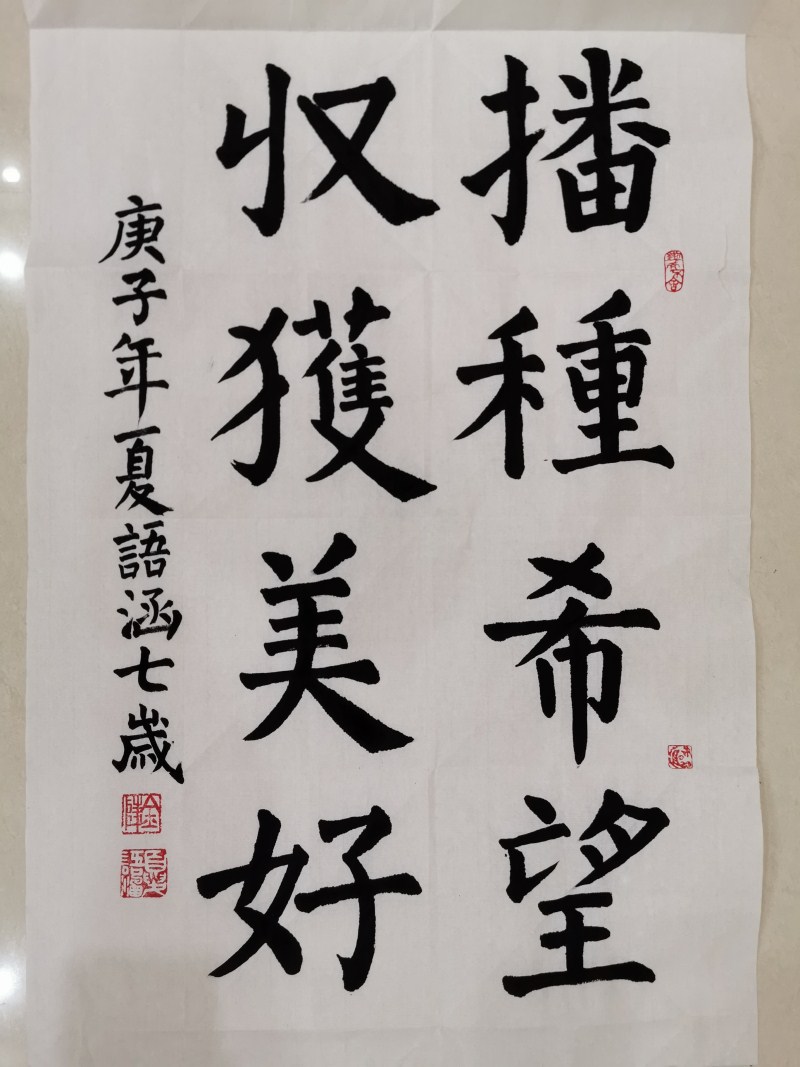 播種希望
収獲美好
庚子年夏語涵七歲